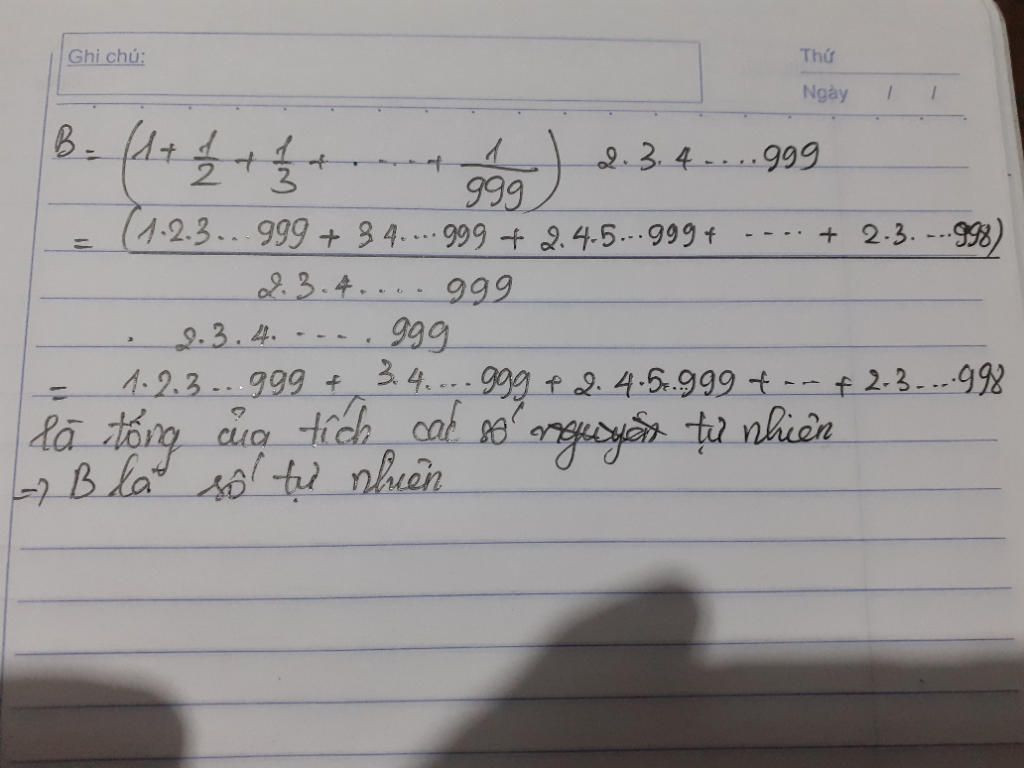 Ghi chú:
Thứ
Ngày / /
B = (1 + 1/2 + 1/3 + ..... + 1/999) 2.3.4.....999
= (1.2.3...999 + 3 4....999 + 2.4.5...999 + ..... + 2.3....998)
2.3.4..... 999
. 2.3.4. ---- . 999
= 1.2.3...999 + 3.4....999 + 2.4.5..999 + --- + 2.3....998
là tổng của tích các số nguyên tự nhiên
=> B là số tự nhiên